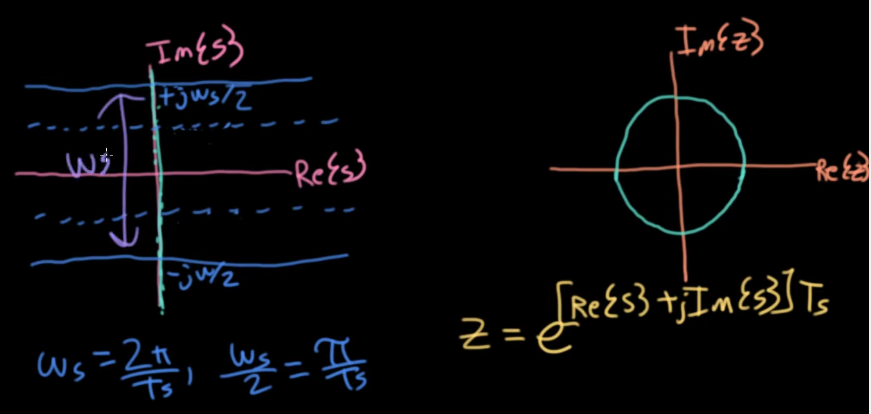 Im{s}
+jωs/2
ωs
Re{s}
-jω/2
ωs = 2π/Ts, ωs/2 = π/Ts
Im{z}
Re{z}
z = e^[Re{s} + jIm{s}]Ts